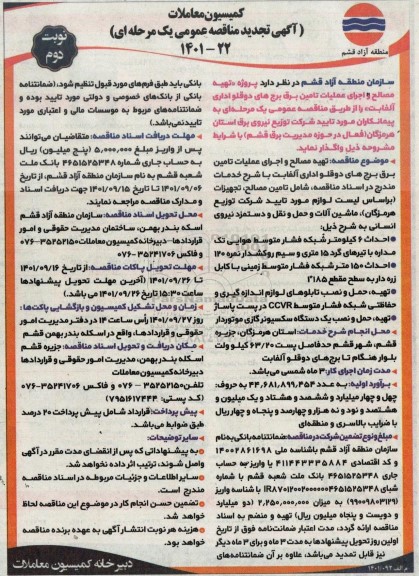 کمیسیون معاملات
(آگهی تجدید مناقصه عمومی یک مرحله ای)
۱۴۰۱-۲۲
نوبت
دوم
منطقه آزاد قشم
سازمان منطقه آزاد قشم در نظر دارد پروژه «تهیه
مصالح و اجرای عملیات تامین برق برج های دوقلو اداری
آلفابت» را از طریق مناقصه عمومی یک مرحله‌ای به
پیمانکاران مورد تایید شرکت توزیع نیروی برق استان
هرمزگان(فعال در حوزه مدیریت برق قشم) با شرایط
مشروحه ذیل واگذار نماید.
موضوع مناقصه: تهیه مصالح و اجرای عملیات تامین
برق برج های دوقلو اداری آلفابت با شرح خدمات
مندرج در اسناد مناقصه، شامل تامین مصالح، تجهیزات
(براساس لیست لوازم مورد تایید شرکت توزیع
هرمزگان)، ماشین آلات و حمل و نقل و دستمزد نیروی
انسانی به شرح ذیل:
احداث ۶ کیلومتر شبکه فشار متوسط هوایی تک
مداره با تیرهای گرد ۱۵ متری و سیم روکشدار نمره ۱۲۰
احداث ۱۵۰ متر شبکه فشار متوسط زمینی با کابل
زره دار به سطح مقطع ۱۸۵*۳
تهیه، حمل و نصب تابلوهای لوازم اندازه گیری و
حفاظتی شبکه فشار متوسط CCVR در پست پاساژ
تهیه، حمل و نصب یک دستگاه سکسیونر گازی موتوردار
محل انجام شرح خدمات: استان هرمزگان، جزیره
قشم، شهر قشم حدفاصل پست ۶۳/۲۰ کیلو ولت
بلوار هنگام تا برج‌های دوقلو آلفابت
مدت زمان اجرای کار: ۳ ماه شمسی می باشد.
برآورد اولیه: به عدد ۴۴,۶۸۱,۸۹۹,۴۵۴ به حروف:
چهل و چهار میلیارد و ششصد و هشتاد و یک میلیون و
هشتصد و نود و نه هزار و چهارصد و پنجاه و چهار ریال
با ضرایب بالاسری و منطقه‌ای
مبلغ و نوع تضمین شرکت در مناقصه: ضمانتنامه بانکی به نام
سازمان منطقه آزاد قشم باشناسه ملی ۱۴۰۰۲۸۶۱۶۹۸
و کد اقتصادی ۴۱۱۴۴۳۳۵۸۸۴ یا واریز به حساب
جاری ۴۶۵۱۵۲۵۳۴۸ بانک ملت شعبه قشم با شماره
شبا با شناسه واریز
(۹۹۰۰۹۸۰۳۱۲۹) به میزان ۲,۲۵۰,۰۰۰,۰۰۰ (دو میلیارد
و دویست و پنجاه میلیون ریال) تهیه و منضم به اسناد
مناقصه ارائه گردد، مدت اعتبار ضمانت‌نامه فوق از تاریخ
اولین روز تحویل پیشنهادها به مدت ۳ ماه و برای ۳ ماه دیگر
نیز قابل تمدید می‌باشد، علاوه بر آن ضمانتنامه‌های
بانکی باید طبق فرم‌های مورد قبول تنظیم شود، (ضمانتنامه
بانکی از بانک‌های خصوصی و دولتی مورد تایید بوده و
ضمانتنامه‌های مربوط به موسسات مالی و اعتباری مورد
تایید نمی‌باشد.)
مهلت دریافت اسناد مناقصه: متقاضیان می‌توانند
پس از واریز مبلغ ۵,۰۰۰,۰۰۰ (پنج میلیون) ریال
به حساب جاری شماره ۴۶۵۱۵۲۵۳۴۸ بانک ملت
شعبه قشم به نام سازمان منطقه آزاد قشم، از تاریخ
۱۴۰۱/۰۹/۰۶ تا تاریخ ۱۴۰۱/۰۹/۱۵ جهت دریافت اسناد
و مدارک مناقصه مراجعه نمایند.
محل تحویل اسناد مناقصه: سازمان منطقه آزاد قشم
اسکله بندر بهمن، ساختمان مدیریت حقوقی و امور
قراردادها- دبیرخانه کمیسیون معاملات ۳۵۲۵۲۱۵۰-۰۷۶
و فاکس ۳۵۲۴۱۷۰۶-۰۷۶
مهلت تحویل پاکات مناقصه: از تاریخ ۱۴۰۱/۰۹/۱۶
تا ۱۴۰۱/۰۹/۲۶ (آخرین مهلت تحویل پیشنهادها
ساعت ۱۵:۳۰ تاریخ ۱۴۰۱/۰۹/۲۶ می باشد.)
زمان و محل تشکیل کمیسیون و بازگشایی پاکت‌ها:
روز ۱۴۰۱/۰۹/۲۷ راس ساعت ۱۴ در دفتر مدیریت امور
حقوقی و قراردادها، واقع در اسکله بندر بهمن قشم
مکان دریافت و تحویل اسناد مناقصه: جزیره قشم
اسکله بندر بهمن، مدیریت امور حقوقی و قراردادها
دبیرخانه کمیسیون معاملات
تلفن: ۳۵۲۵۲۱۵۰-۰۷۶ و فاکس ۳۵۲۴۱۷۰۶-۰۷۶
(کد پستی: ۷۹۵۱۶۱۷۴۴۴)
پیش پرداخت: قرارداد شامل پیش پرداخت ۲۰ درصد
طبق ضوابط می‌باشد.
سایر توضیحات:
به پیشنهاداتی که پس از انقضای مدت مقرر در آگهی
واصل شوند، ترتیب اثر داده نخواهد شد.
سایر اطلاعات و جزئیات مربوطه در اسناد مناقصه
مندرج است.
تضمین حسن انجام کار در موضوع این مناقصه لحاظ
خواهد شد.
هزینه هر نوبت انتشار آگهی به عهده برنده مناقصه
خواهد بود.
دبیرخانه کمیسیون معاملات